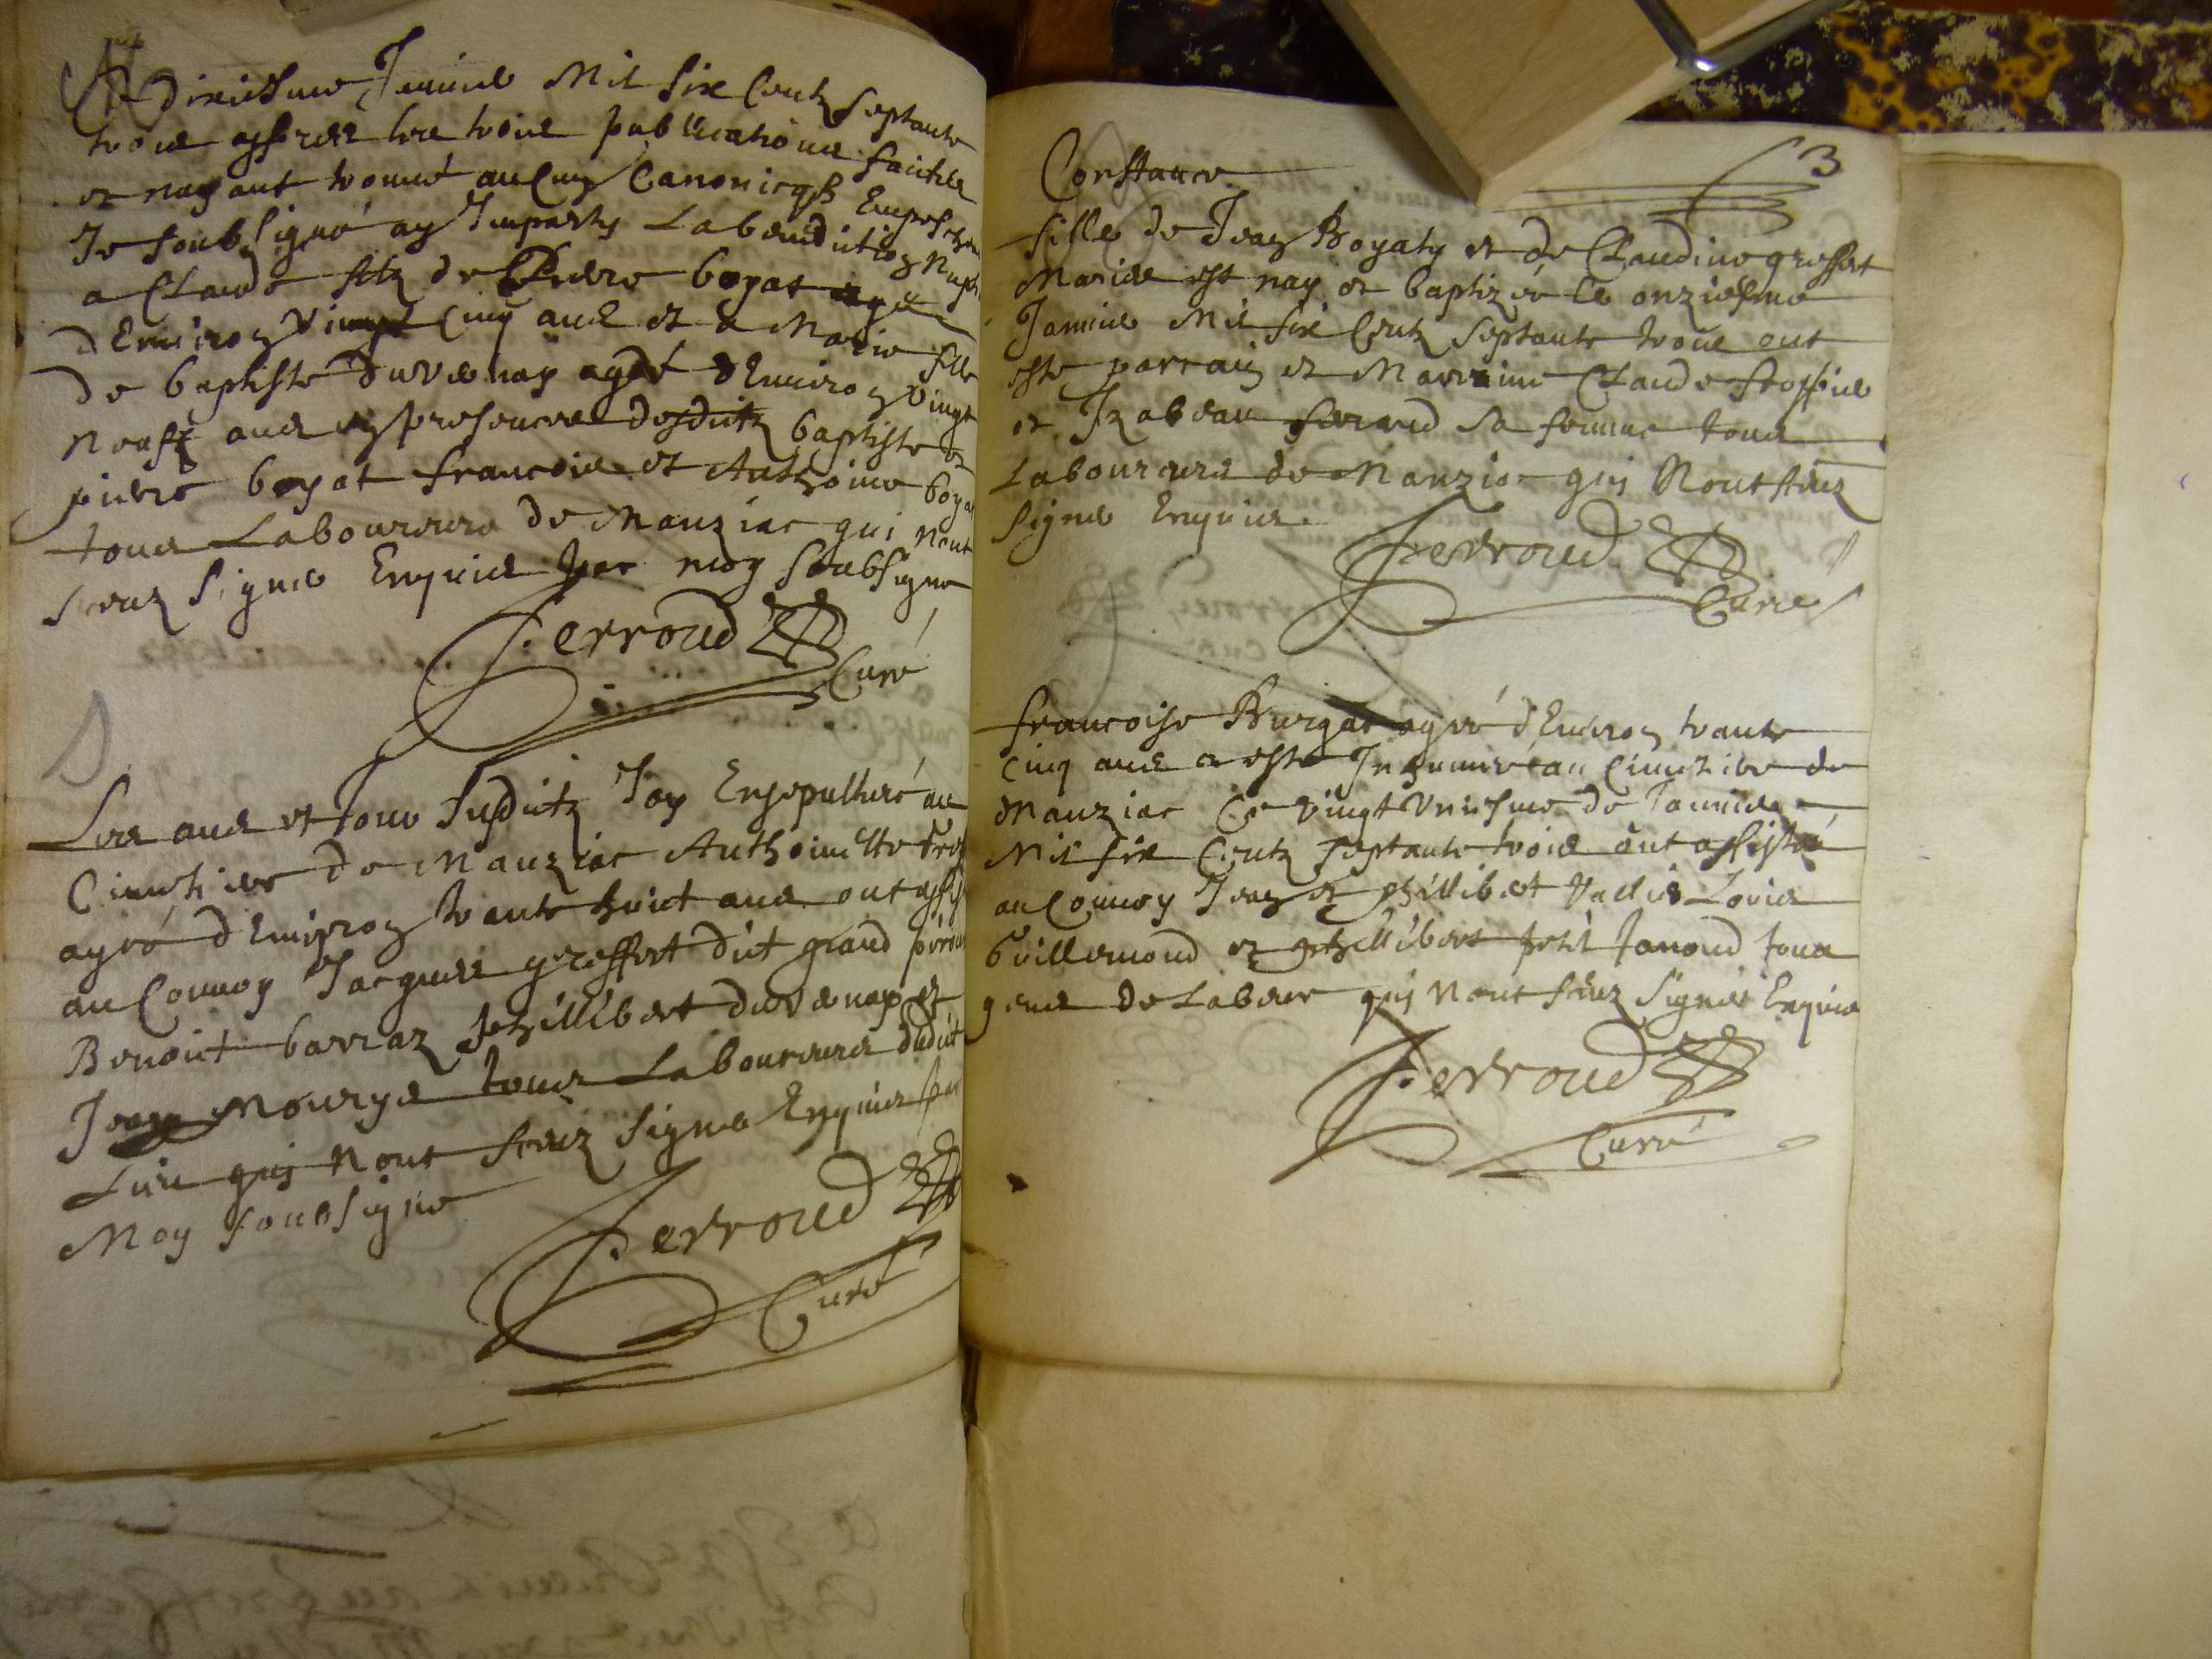 Dixiesme Janvier Mil six Centz septante
trois appres les trois publications faictes
et nayant trouvé aucung Canonicq
Je soubsigné ay Imparty La benediction
a Claude filz de Pierre boyat
d'Environ vingt Cinq ans et a Marie fille
de baptiste duvernay agée d'Environ vingt
neufz ans en presences desdictz baptiste et
pierre boyat francois et Anthoine boyat
tous Laboureurs de Manziac qui nont
sceuz signer Enquis par moy soubsigne
Ferroud
Curé
Les ans et Jour susdictz Jay Ensepulturé au
Cimetiere de Manziac Anthoinette
agée d'Environ trante huict ans ont
au Convoy Jacques greffet dict grand
Benoict barraz philibert duvernay et
Jean Mourye tous Laboureurs dudict
Lieu qui Nont sceuz signer Enquis par
Moy soubsigne
Ferroud
Curé
3
Constance
fille de Jean Boyaty et de Claudine greffet
Mariés est nay et baptizée le onziesme
Janvier Mil six Centz septante trois ont
este parrain et Marraine Claude
et Izabeau sa femme tous
Laboureurs de Manziac qui Nont sceuz
signer Enquis
Ferroud
Curé
francoise Burgat agée d'Environ trante
Cinq ans a esté Inhumée au Cimetiere de
Manziac Ce vingt Uniesme de Janvier
Mil six Centz septante trois ont assisté
au Convoy Jean et phillibert Louis
Guillemond et phillibert petit Janoud tous
gens de Labeur qui Nont sceuz signer Enquis
Ferroud
Curé